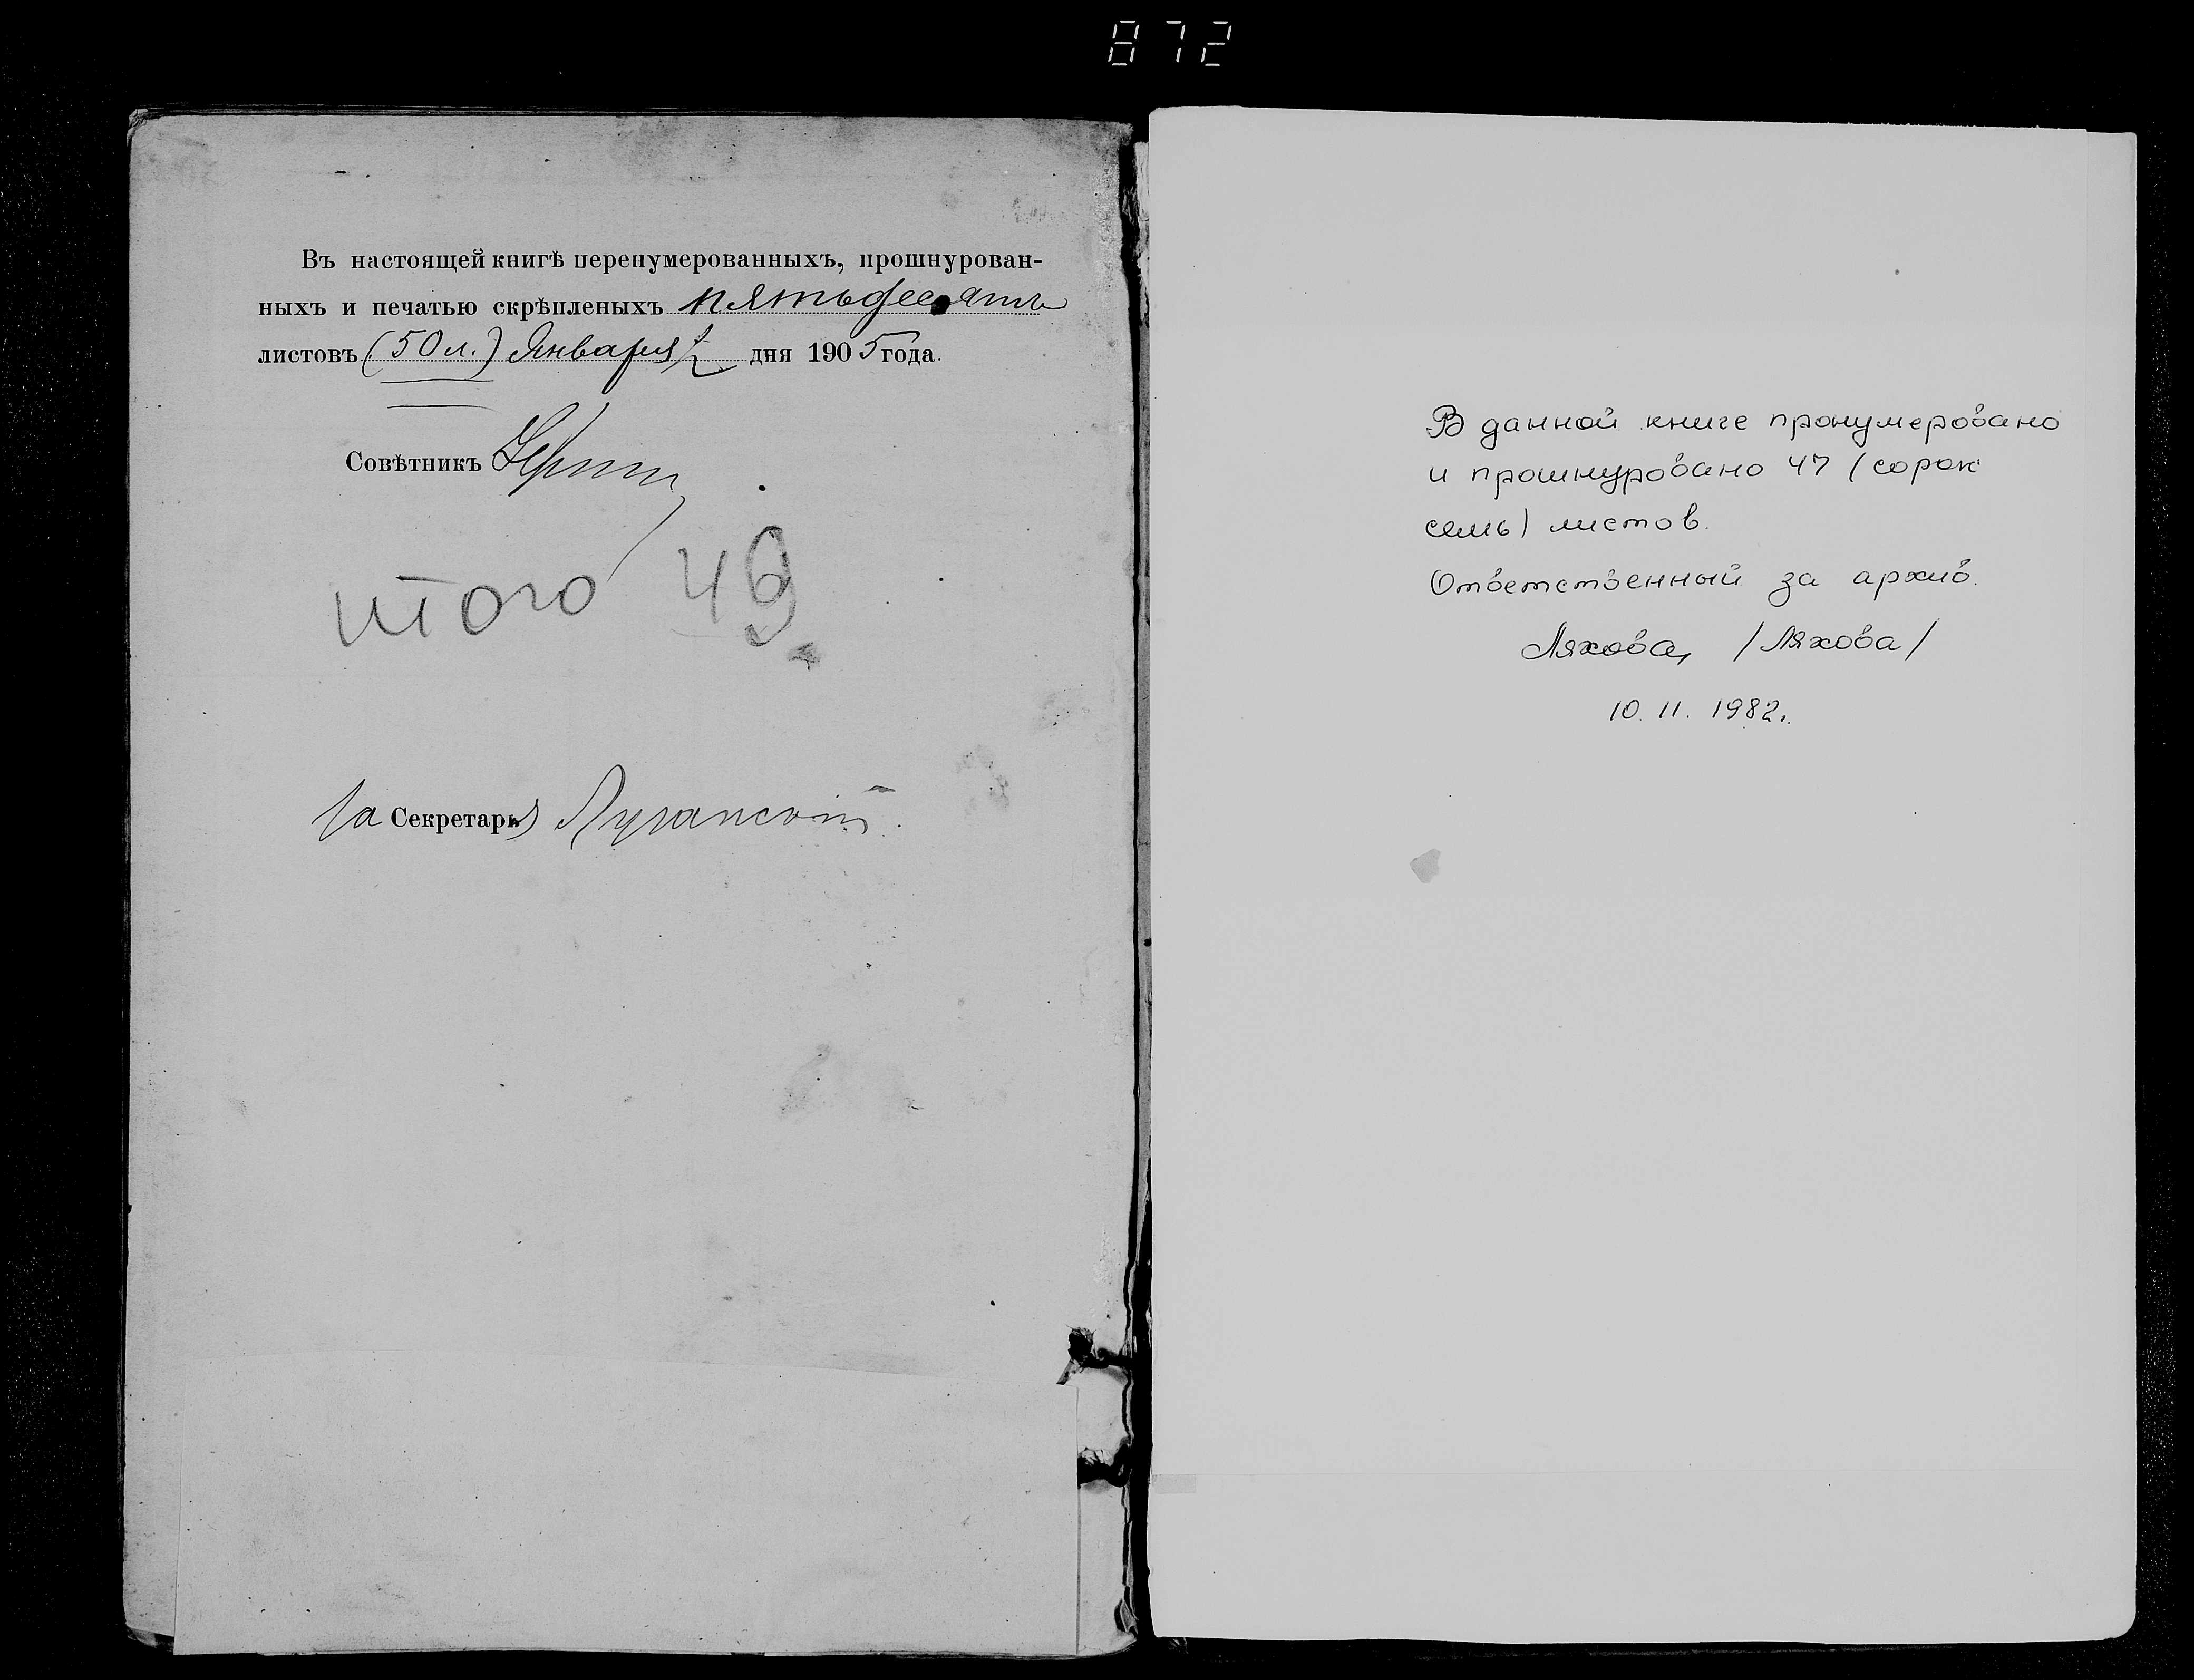 872
Въ настоящей книгѣ перенумерованныхъ, прошнурован-
ныхъ и печатью скрѣпленыхъ пятьдесятъ
листовъ (50 л.) Января дня 1905 года.
Совѣтникъ
итого 49
За Секретаря Луганскій
В данной книге пронумеровано
и прошнуровано 47 (сорок
семь) листов.
Ответственный за архив.
Ляхова /Ляхова/
10. 11. 1982г.